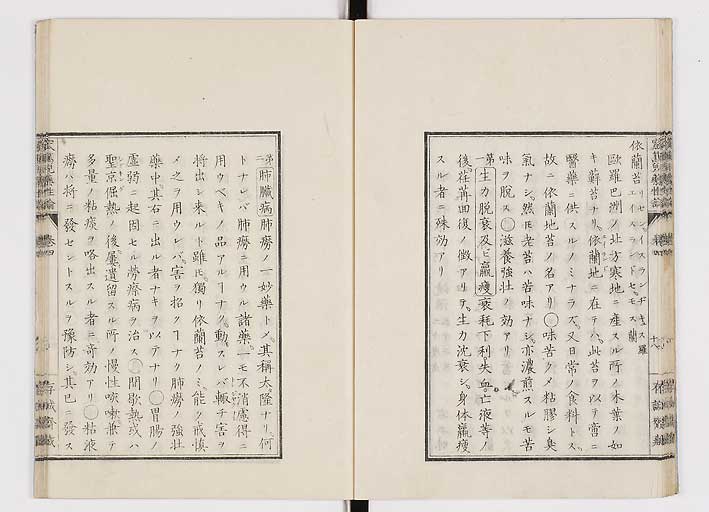 依蘭苔 リセンイスランヂキュス羅 エイスランドセモス蘭
歐羅巴洲ノ北方寒地ニ産スル所ノ木葉ノ如
キ蘚苔ナリ依蘭地ニ在テハ此苔ヲ以テ啻ニ
醫藥ニ供スルノミナラズ又日常ノ食料トス
故ニ依蘭地苔ノ名アリ○味苦ク〆粘膠シ臭
氣ナシ然𪜈老苔ハ苦味ナシ亦濃煎スルモ苦
味ヲ脱ス○滋養強壮ノ効アリ
第一 生力脱衰及ビ羸痩衰耗下利失血亡液等ノ
後荏苒囬復ノ徴アリテ生力沈衰シ身体羸痩
スル者ニ殊効アリ
第二 肺臓病肺癆ノ一妙藥ト〆其稱太隆ナリ何
トナレバ肺癆ニ用ウル諸藥一モ不消慮得ニ
用ウベキノ品アルヿナク動スレバ輙チ害ヲ
將出シ来ルト雖𪜈獨リ依蘭苔ノミ能ク戒慎
〆之ヲ用ウレバ害ヲ招クヿナク肺癆ノ強壮
藥中其右ニ出ル者ナキヲ以テナリ○胃腸ノ
虚弱ニ起因セル勞療病ヲ治ス○間歇熱或ハ
聖京倔熱ノ後屢遺留スル所ノ慢性咳嗽兼テ
多量ノ粘痰ヲ咯出スル者ニ奇効アリ○粘液
癆ハ将ニ發セントスルヲ豫防シ其已ニ發ス
卷四